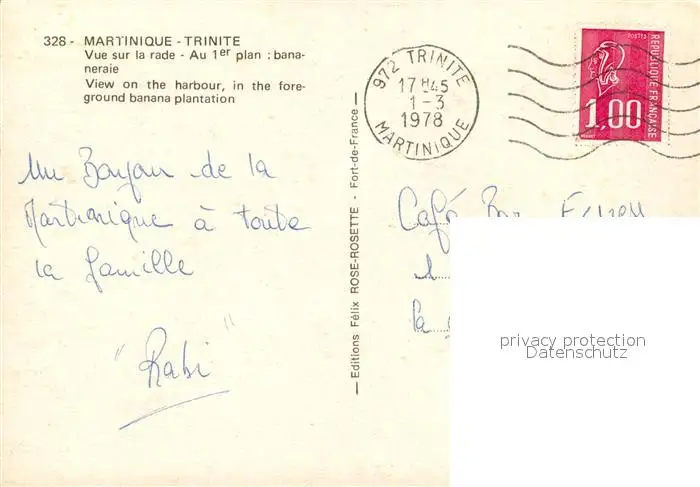 328 - MARTINIQUE - TRINITE
Vue sur la rade - Au 1er plan : bana-
neraie
View on the harbour, in the fore-
ground banana plantation
972 TRINITE
17H45
1-3
1978
MARTINIQUE
POSTES
REPUBLIQUE FRANÇAISE
1,00
Un Bonjour de la
Martinique à toute
la famille
"Rabi"
— Editions Félix ROSE-ROSETTE - Fort-de-France —
Café Bar
privacy protection
Datenschutz